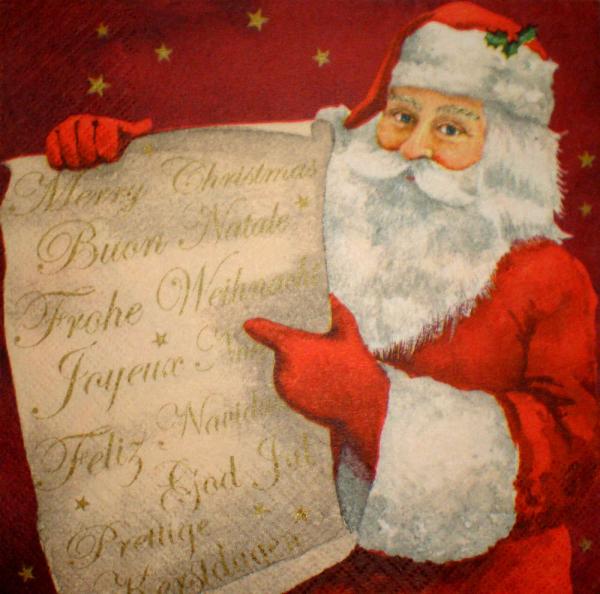 Merry Christmas
Buon Natale
Frohe Weihnacht
Joyeux
Feliz Navidad
God Jul
Prettige
Kerstdagen